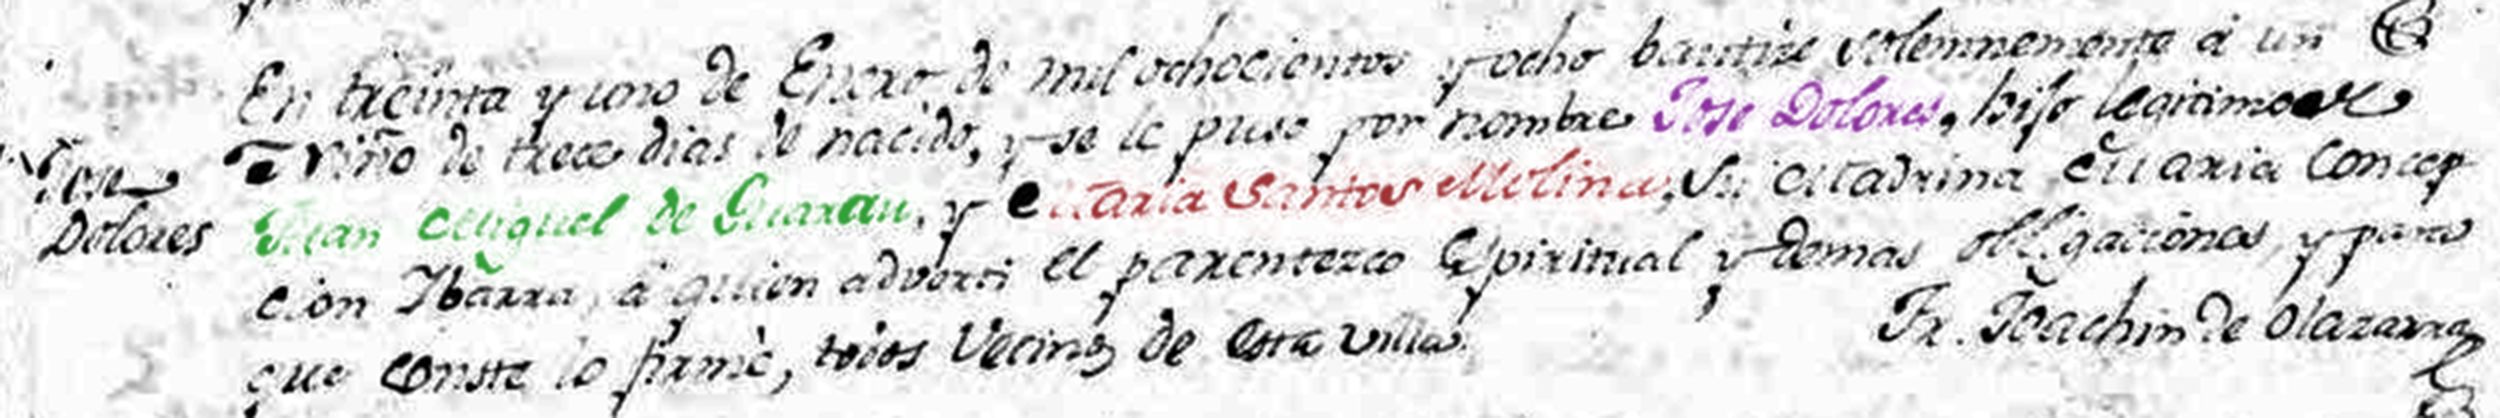 En treinta y uno de Enero de mil ochocientos y ocho bautize solemnemente á un
Niño de trece dias de nacido, y se le puso por nombre Jose Dolores, hijo legitimo de
Jose
Dolores
Juan Miguel de Guarau, y Maria Santos Molina, Su Madrina Maria Concep
cion Ybarra, á quien adverti el parentezco Espiritual y demas obligaciones, y para
que conste lo firmé, todos Vecinos de esta Villa.
Fr. Joachin de Olazarra